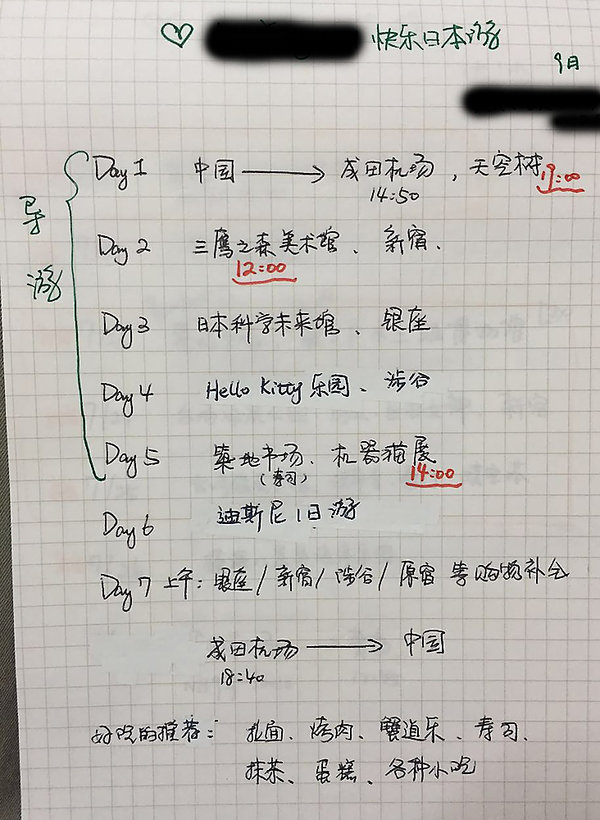 ♡ 快乐日本游
9月
导游
Day 1 中国 → 成田机场,天空树 19:00
14:50
Day 2 三鹰之森美术馆、新宿、
12:00
Day 3 日本科学未来馆、银座
Day 4 Hello Kitty 乐园、涉谷
Day 5 築地市场、机器猫展
(寿司) 14:00
Day 6 迪斯尼1日游
Day 7 上午:银座/新宿/涉谷/原宿 等购物补仓
成田机场 → 中国
18:40
好吃的推荐: 拉面、烤肉、蟹道乐、寿司、
抹茶、蛋糕、各种小吃